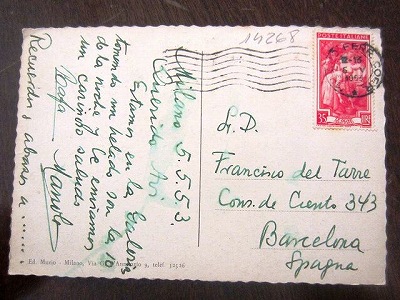 14268
POSTE ITALIANE
35 LIRE
Milano 5.5.53.
Querido
Estamos en la Galeria
tomando un helado son la 10
de la noche. Te enviamos
un cariñoso saludo
Manolo
Recuerdos, abrazos a ......
S. D.
Francisco del Tarre
Cons. de Ciento 343
Barcelona
Spagna
Ed. Muzio - Milano, Via 9, telef. 32526